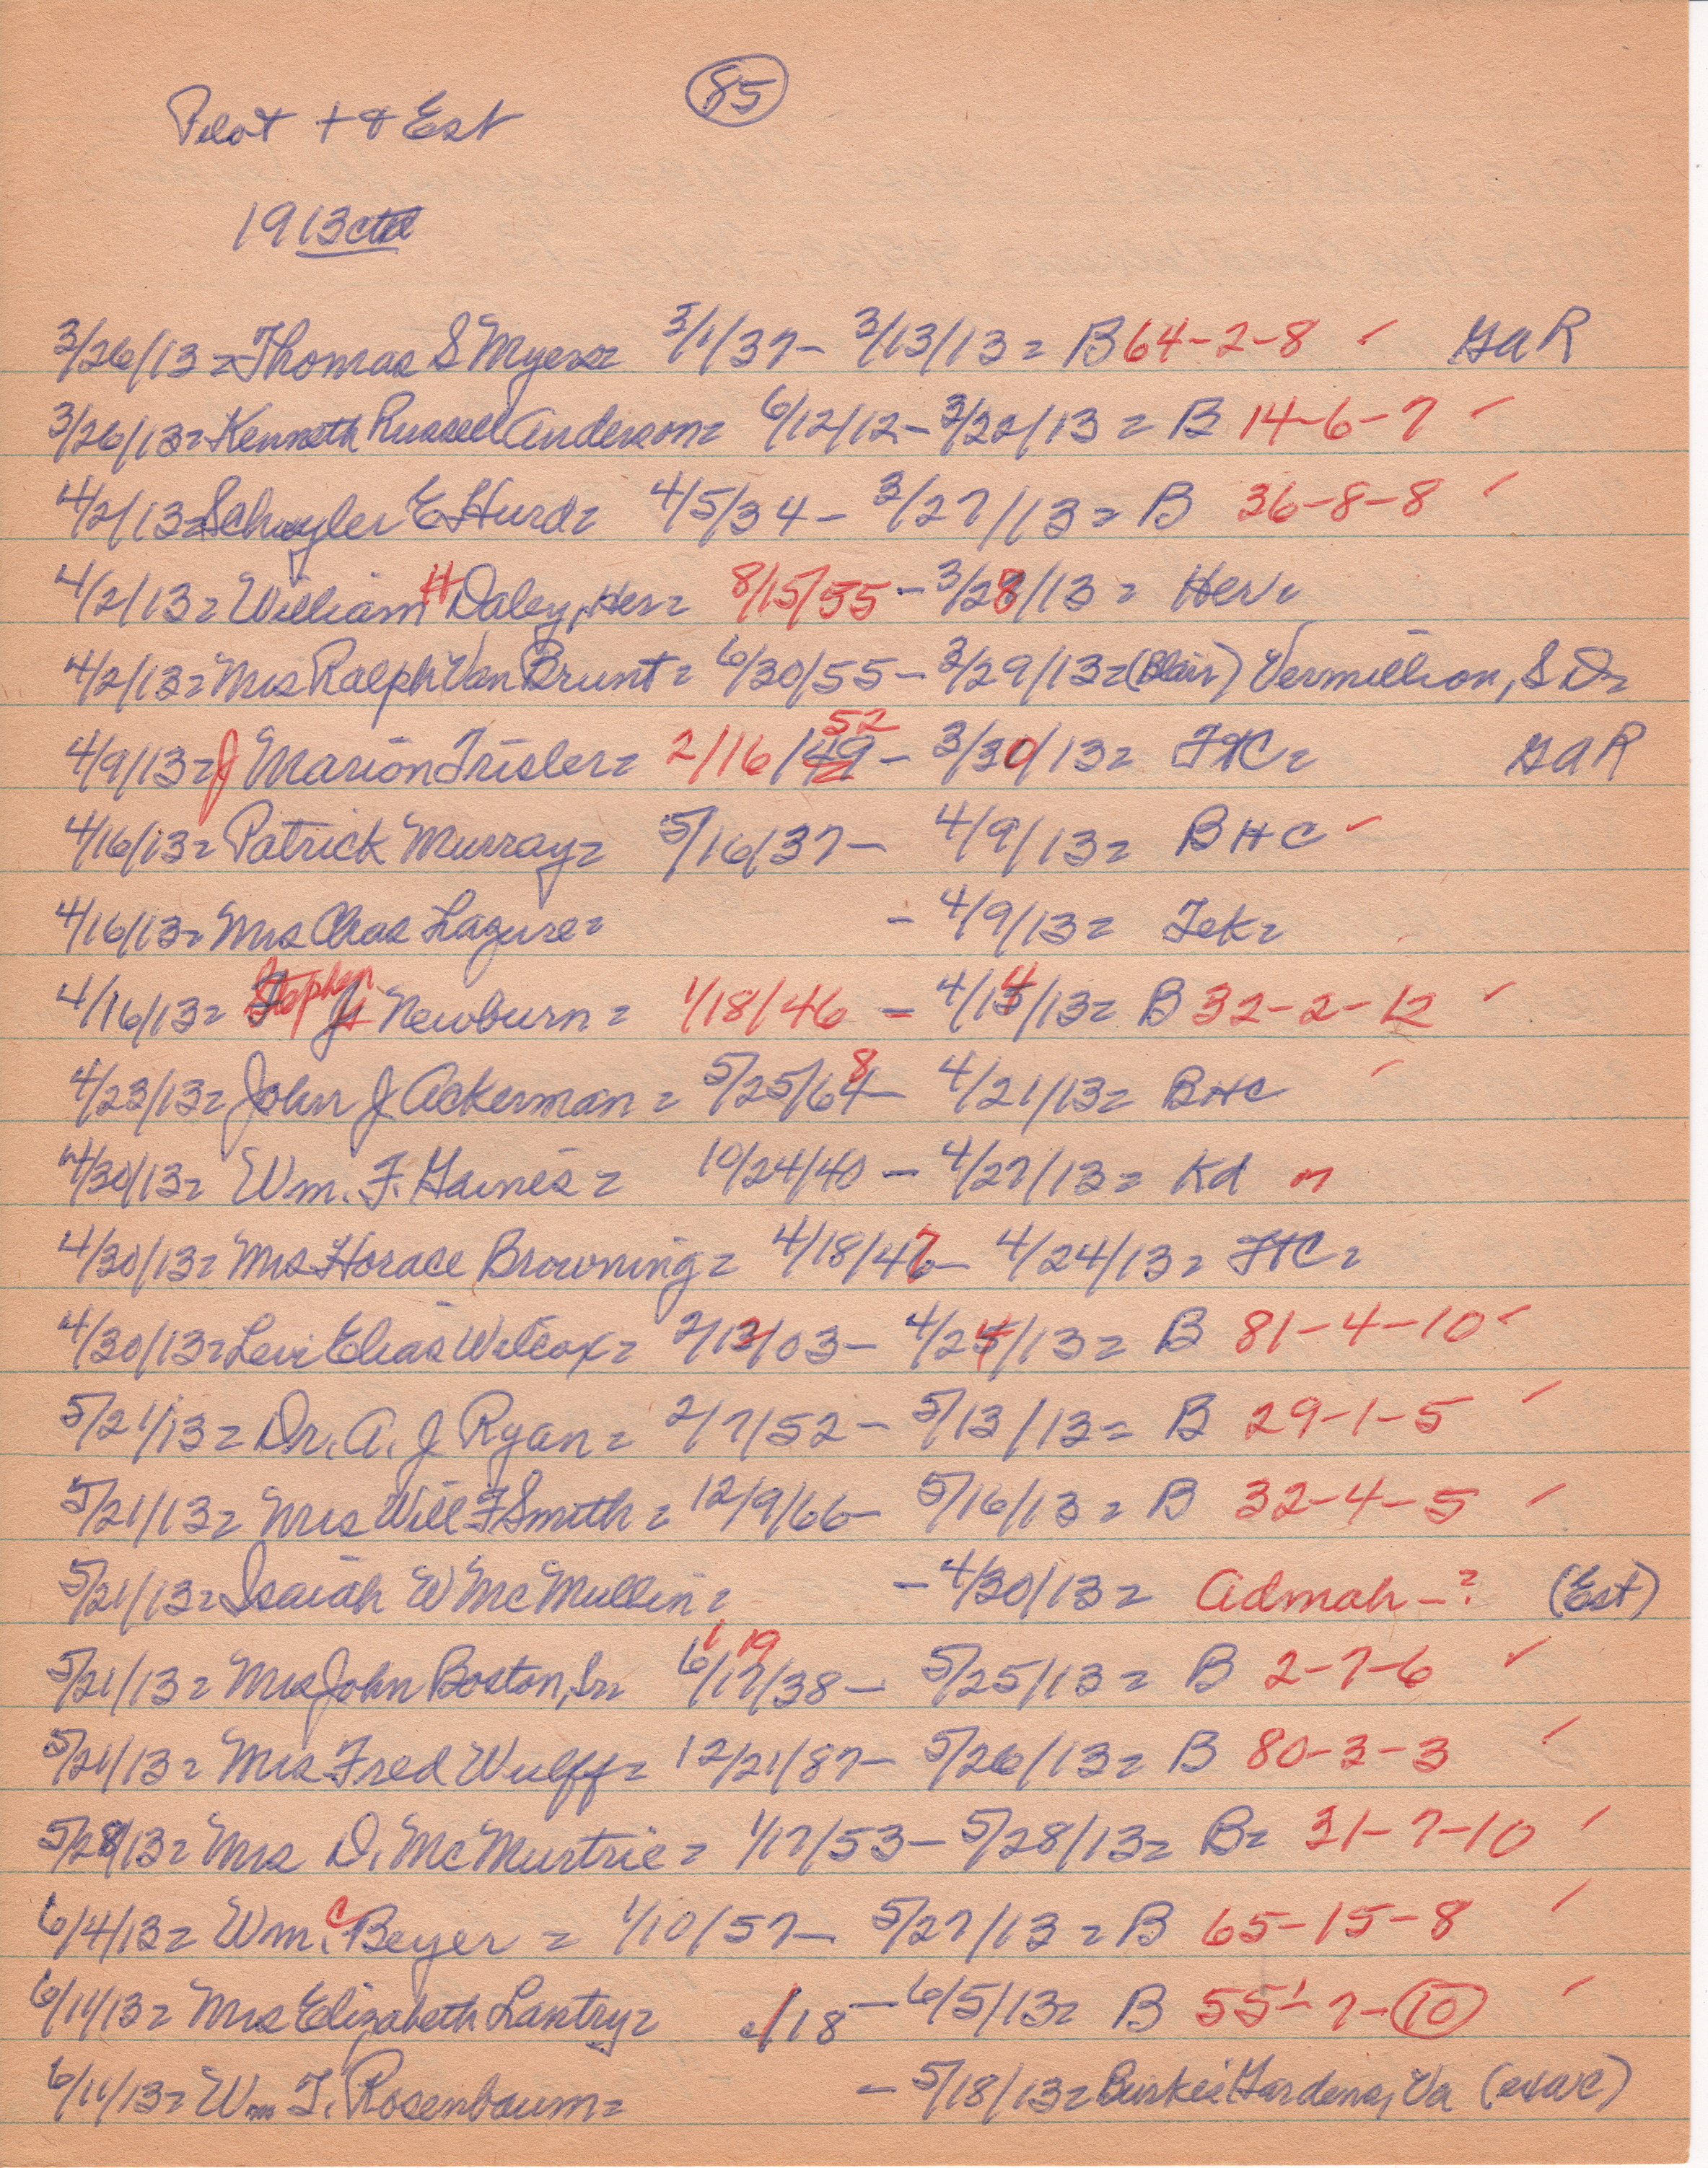 85
Pilot + & Est
1913 ctd
3/26/13 = Thomas S Myers = 3/1/37 - 3/13/13 = B 64-2-8 ✓ GAR
3/26/13 = Kenneth Russell Anderson = 6/12/12 - 3/22/13 = B 14-6-7 ✓
4/2/13 = Schuyler E Hurd = 4/5/34 - 3/27/13 = B 36-8-8 ✓
4/2/13 = William H Daley, Her = 8/15/55 - 3/28/13 = Her =
4/2/13 = Mrs Ralph Van Brunt = 6/30/55 - 3/29/13 = (Blair) Vermillion, S D =
4/9/13 = J Marion Trisler = 2/16/49 52 - 3/30/13 = FtC = GAR
4/16/13 = Patrick Murray = 5/16/37 - 4/9/13 = BHC ✓
4/16/13 = Mrs Chas Lazure = - 4/9/13 = Tek =
4/16/13 = Stephen H Newburn = 1/18/46 - 4/14/13 = B 32-2-12 ✓
4/23/13 = John J Ackerman = 5/25/68 - 4/21/13 = BHC ✓
4/30/13 = Wm. F. Gaines = 10/24/40 - 4/27/13 = Kd n
4/30/13 = Mrs Horace Browning = 4/18/47 - 4/24/13 = FtC =
4/30/13 = Levi Elias Wilcox = 2/12/03 - 4/24/13 = B 81-4-10 ✓
5/21/13 = Dr. A. J Ryan = 2/7/52 - 5/13/13 = B 29-1-5 ✓
5/21/13 = Mrs Will F Smith = 12/9/66 - 5/16/13 = B 32-4-5 ✓
5/21/13 = Isaiah W McMullin = - 4/30/13 = Admah - ? (Est)
5/21/13 = Mrs John Boston, Sr = 6/17/38 1 19 - 5/25/13 = B 2-7-6 ✓
5/21/13 = Mrs Fred Wulff = 12/21/87 - 5/26/13 = B 80-3-3 ✓
5/28/13 = Mrs D. McMurtrie = 1/17/53 - 5/28/13 = B = 31-7-10 ✓
6/4/13 = Wm. C Beyer = 1/10/57 - 5/27/13 = B 65-15-8 ✓
6/11/13 = Mrs Elizabeth Lantry = /18 - 6/5/13 = B 55-7-10 ✓
6/11/13 = Wm T. Rosenbaum = - 5/18/13 = Burkes Gardens, Va